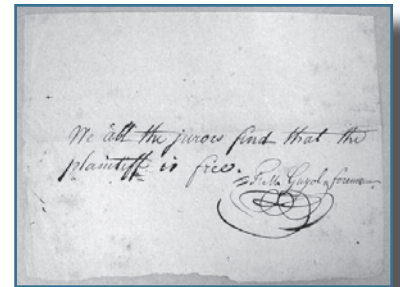 We all the jurors find that the
plaintiff is free.
Guyol foreman